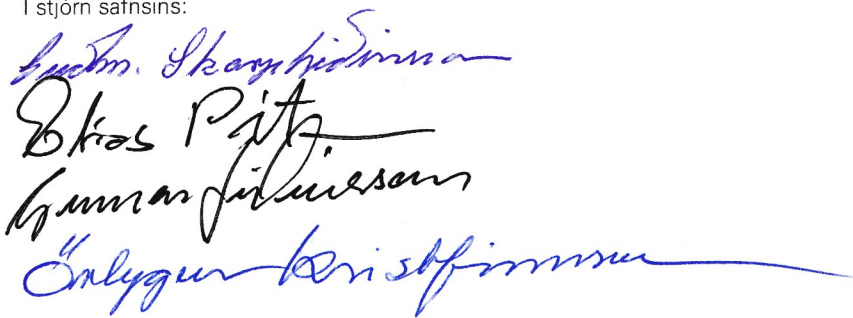 Í stjórn safnsins:
Guðm. Skarphéðinsson
Elías
Gunnar Júlíusson
Örlygur Kristfinnsson